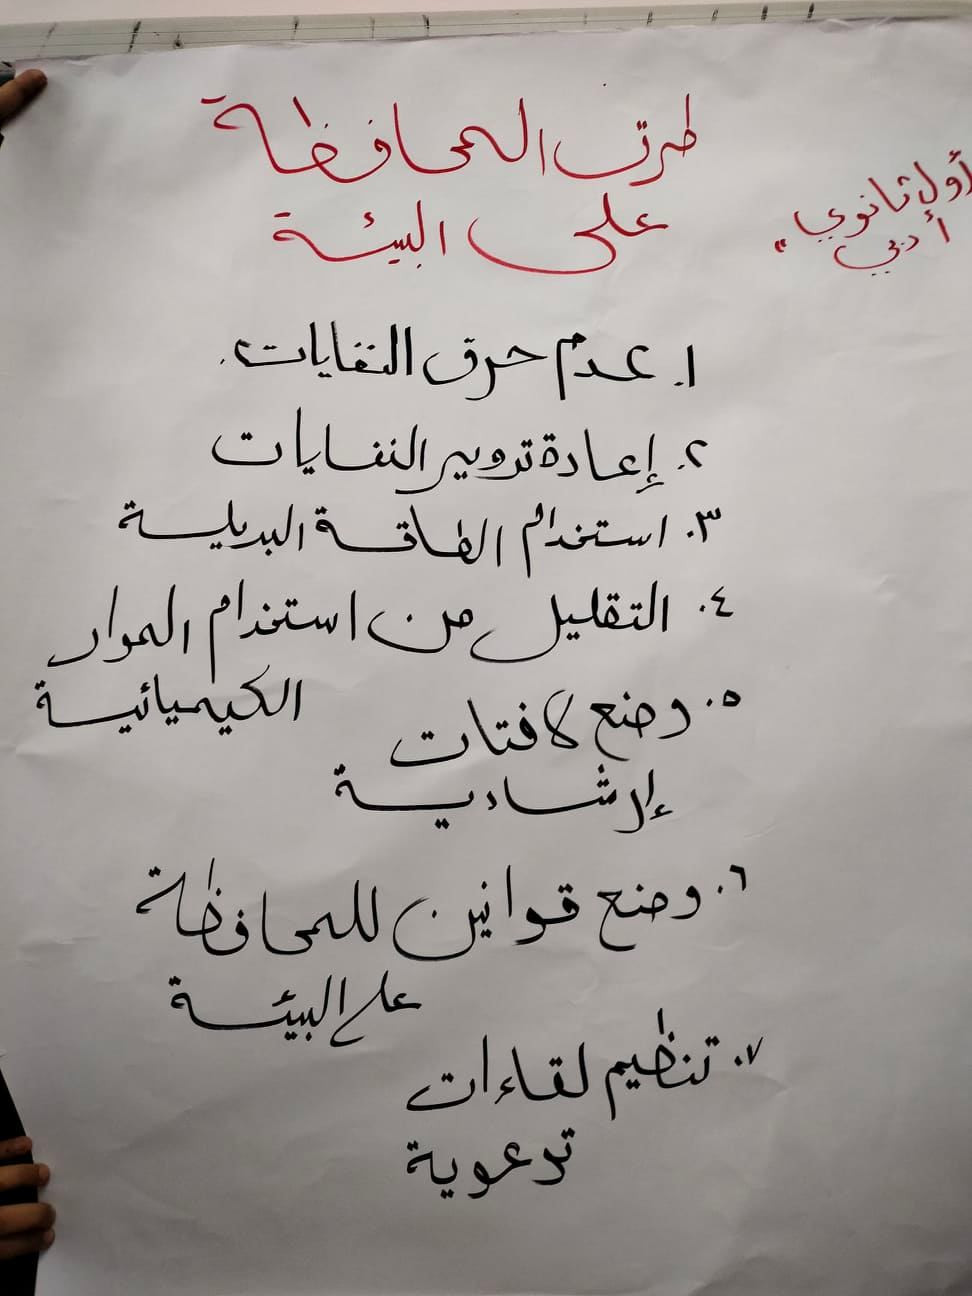 طرق المحافظة
على البيئة
أول ثانوي
أدبي "
١. عدم حرق النفايات.
٢. إعادة تدوير النفايات
٣. استخدام الطاقة البديلة
٤. التقليل من استخدام المواد
الكيميائية
٥. وضع لافتات
إرشادية
٦. وضع قوانين للمحافظة
على البيئة
٧. تنظيم لقاءات
توعوية